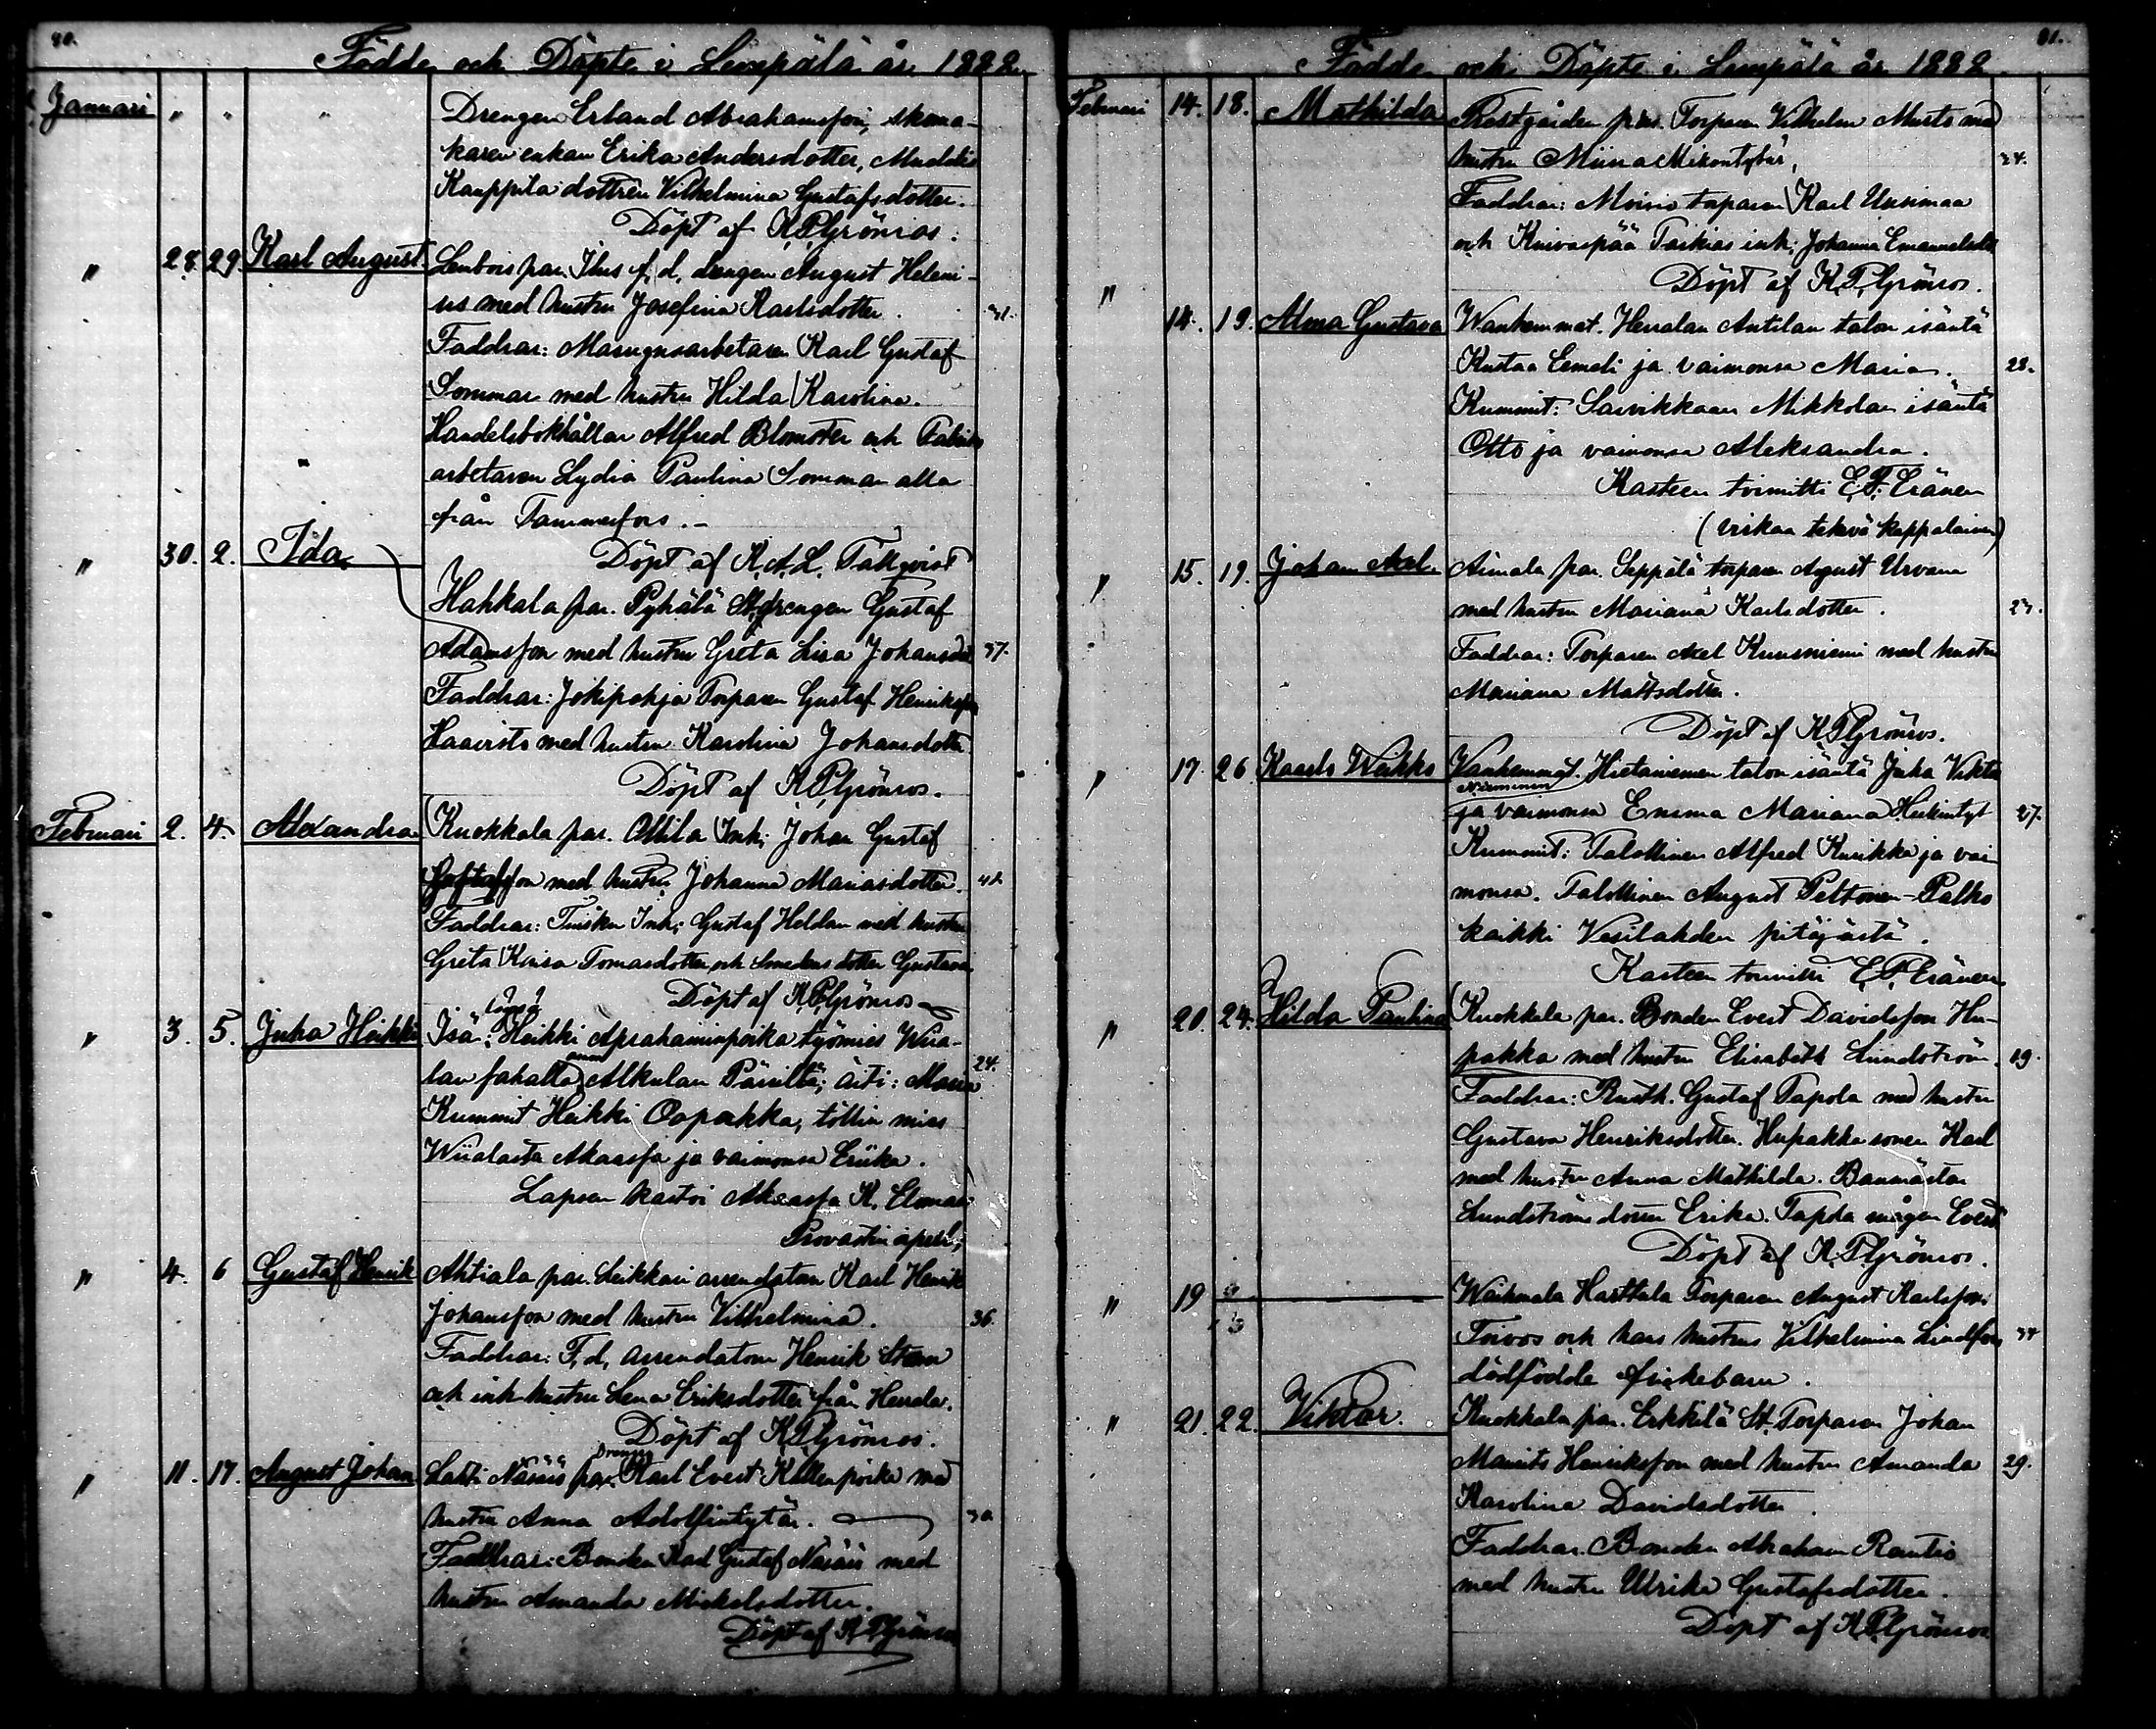 80.
Födde och Döpte i Lempälä år 1882.
Januari " " " Drengen Erland Abrahamsson, skoma-
kareenkan Erika Andersdotter, Mudds
Kauppila dottren Vilhelmina Gustafsdotter.
Döpt af K.P. Grönroos.
" 28. 29 Karl August Lembois par. Ihus f.d. drengen August Heleni-
us med hustru Josefina Karlsdotter. 31.
Faddrar: Masugnsarbetaren Karl Gustaf
Sommar med hustru Hilda Karolina.
Handelsbokhållar Alfred Blomster och Fabriks
arbetaren Lydia Paulina Sommar alla
från Tammerfors.
" 30. 2. Ida Döpt af K.A.L. Tallqvist
Hahkala par. Pyhälä St.drengen Gustaf
Adamsson med hustru Greta Lisa Johansd 37.
Faddrar: Jokipohja Torparen Gustaf Henriksson
Haavisto med hustru Karolina Johansdotter
Döpt af K.P. Grönroos.
Februari 2. 4. Alexandra Kuokkala par. Ollila Inh. Johan Gustaf
Gustafsson med hustru Johanna Mariasdotter. 42.
Faddrar: Inh. Gustaf Helldan med hustru
Greta Kaisa Tomasdotter och Smedens dotter Gustava
Döpt af K.P. Grönroos
" 3. 5. Juha Heikki Isä: Heikki Aprahaminpoika työmies Wiia-
lan sahalta Alkulan Pärriltä; äiti: Maria 24.
Kummit Heikki Oopakka, töllin mies
Wiialasta Akaassa ja vaimonsa Eriika.
Lapsen kastoi Akaassa K. Elomaa
Provastin apul.
" 4. 6 Gustaf Henrik Ahtiala par. Leikkari arrendatorn Karl Henrik
Johansson med hustru Vilhelmina. 36.
Faddrar: F.d. arrendatorn Henrik Sten
och inh hustru Lena Eriksdotter från Herrala.
Döpt af K.P. Grönroos.
" 11. 17. August Johan Lahti Näsiis par. Drengen Karl Evert Kallenpoika med
hustru Anna Adolfintytär. 30
Faddrar: Bonden Karl Gustaf Näsiis med
hustru Amanda Mickelsdotter.
Döpt af K.P. Grönroos
81.
Födde och Döpte i Lempälä år 1882
Februari 14. 18. Mathilda Prostgården par. Torparen Vilhelm Musto med
hustru Miina Mikontytär, 24.
Faddrar: Moisio torparen Karl Uusimaa
och Kuivaspää Taskias inh. Johanna Emanuelsdtr
Döpt af K.P. Grönroos.
" 14. 19. Alma Gustava Wanhemmat. Herralan Antilan talon isäntä
Kustaa Eemeli ja vaimonsa Maria. 28.
Kummit: Saivikkaan Mikkolan isäntä
Otto ja vaimonsa Aleksandra.
Kasteen toimitti E.F. Eränen
(virkaa tekevä kappalainen)
" 15. 19. Johan Axel Aimala par. Seppälä torparen August Urvana
med hustru Mariana Karlsdotter. 23.
Faddrar: Torparen Axel Kuusniemi med hustru
Mariana Mattsdotter.
Döpt af K.P. Grönroos.
" 17 26 Kaarlo Weikko Vanhemmat. Hietaniemen talon isäntä Juha Viktor
Nieminen
ja vaimonsa Emma Mariana Heikintyt 27.
Kummit: Talollinen Alfred Kurikka ja vai
monsa. Talollinen August Peltonen-Palko
kaikki Vesilahden pitäjästä.
Kasteen toimitti E.F. Eränen
" 20. 24. Hilda Paulina Kuokkala par. Bonden Evert Davidsson Hu-
pakka med hustru Elisabeth Lundström. 19.
Faddrar: Rusth. Gustaf Tapola med hustru
Gustava Henriksdotter. Hupakka sonen Karl
med hustru Anna Mathilda. Banmästar
Lundströms dotter Erika. Tapola mågen Evert
Döpt af K.P. Grönroos.
" 19 Waihmala Harttala Torparen August Karlsson
Toivos och hans hustrus Vilhelmina Lindfors 34
dödfödde flickebarn.
" 21. 22. Viktor. Kuokkala par. Erkkilä St. Torparen Johan
Maurits Henriksson med hustru Amanda 29.
Karolina Davidsdotter
Faddrar. Bonden Abraham Rantio
med hustru Ulrika Gustafsdotter.
Döpt af K.P. Grönroos